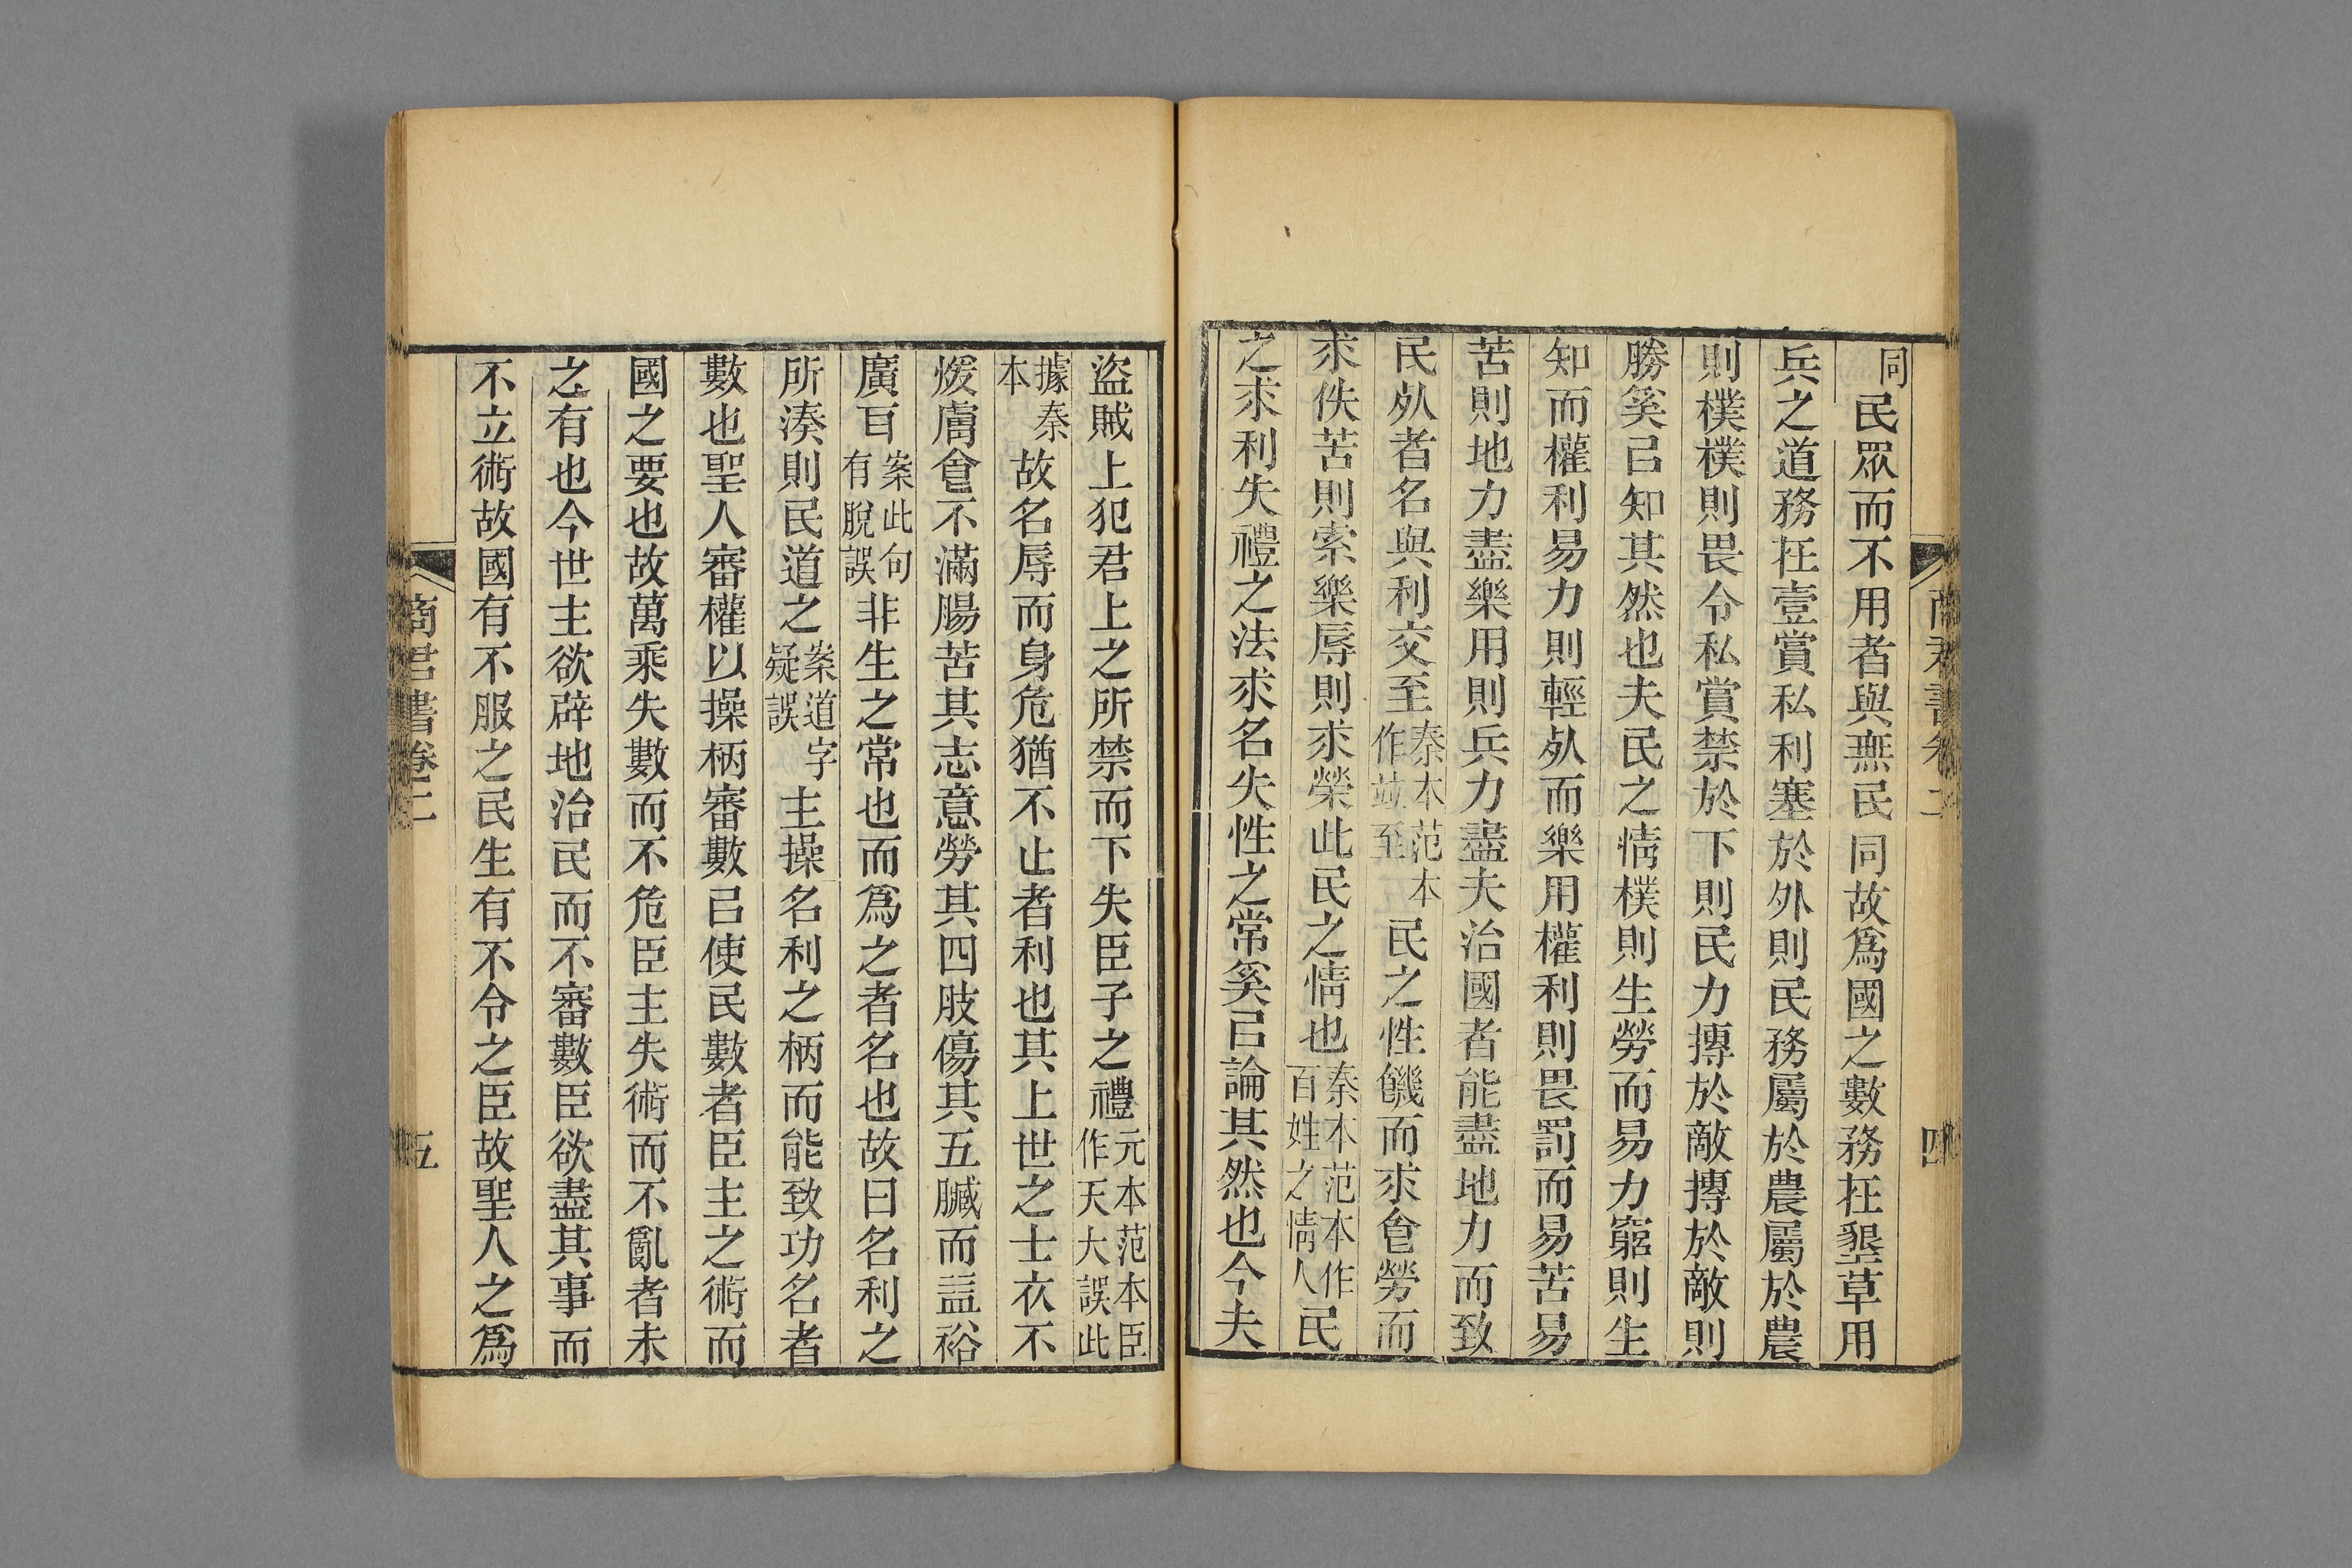 商君書卷二 四
同民眾而不用者與無民同故爲國之數務在墾草用
兵之道務在壹賞私利塞於外則民務屬於農屬於農
則樸樸則畏令私賞禁於下則民力摶於敵摶於敵則
勝奚㠯知其然也夫民之情樸則生勞而易力窮則生
知而權利易力則輕死而樂用權利則畏罰而易苦易
苦則地力盡樂用則兵力盡夫治國者能盡地力而致
民死者名與利交至秦本范本作竝至民之性饑而求食勞而
求佚苦則索樂辱則求榮此民之情也秦本范本作百姓之情人民
之求利失禮之法求名失性之常奚㠯論其然也今夫
盜賊上犯君上之所禁而下失臣子之禮元本范本臣作天大誤此
據秦本故名辱而身危猶不止者利也其上世之士衣不
煖膚食不滿腸苦其志意勞其四肢傷其五臟而益裕
廣百案此句有脫誤非生之常也而爲之者名也故曰名利之
所湊則民道之案道字疑誤主操名利之柄而能致功名者
數也聖人審權以操柄審數㠯使民數者臣主之術而
國之要也故萬乘失數而不危臣主失術而不亂者未
之有也今世主欲辟地治民而不審數臣欲盡其事而
不立術故國有不服之民生有不令之臣故聖人之爲
商君書卷二 五